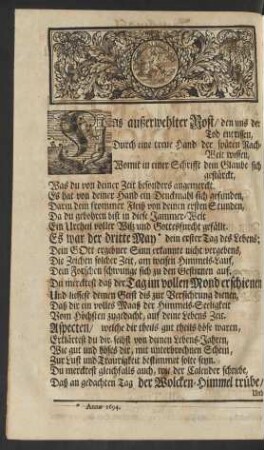 Uns außerwehlter Rost / den uns der
Tod entrissen,
Durch eine treue Hand der späten Nach-
Welt wissen,
Womit in einer Schrifft dein Glaube sich
gestärckt,
Was du von deiner Zeit besonders angemerckt.
Es hat von deiner Hand ein Denckmahl sich gefunden,
Darin dein frommer Fleiß von deinen ersten Stunden,
Da du gebohren bist in diese Jammer-Welt
Ein Urtheil voller Witz und Gottesfurcht gefällt.
Es war der dritte May * dein erster Tag des Lebens;
Dein GOtt ergebner Sinn erkannte nicht vergebens,
Die Zeichen solcher Zeit, am weissen Himmels-Lauf,
Dein Forschen schwunge sich zu den Gestirnen auf.
Du mercktest daß der Tag im vollen Mond erschienen
Und liessest deinen Geist dis zur Versichrung dienen,
Daß dir ein volles Maaß der Himmels-Seeligkeit
Vom Höchsten zugedacht, auf deine Lebens Zeit.
Aspecten / welche dir theils gut theils böse waren,
Erklärtest du dir selbst von deinen Lebens-Jahren,
Wie gut und böses dir, mit unterbrochnen Schein,
Zur Lust und Traurigkeit bestimmet solte seyn.
Du mercktest gleichfalls auch, wie der Calender schriebe,
Daß an gedachten Tag der Wolcken-Himmel trübe /
Und
* Anno 1694.